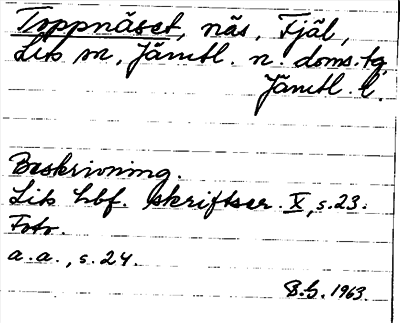 Toppnäset, näs, Fjäl,
Lits sn, Jämtl. n. doms.tg,
Jämtl. l.
Beskrivning.
Lits hbf. skriftser. X, s.23.
Foto.
a.a., s.24.
B.G. 1963.